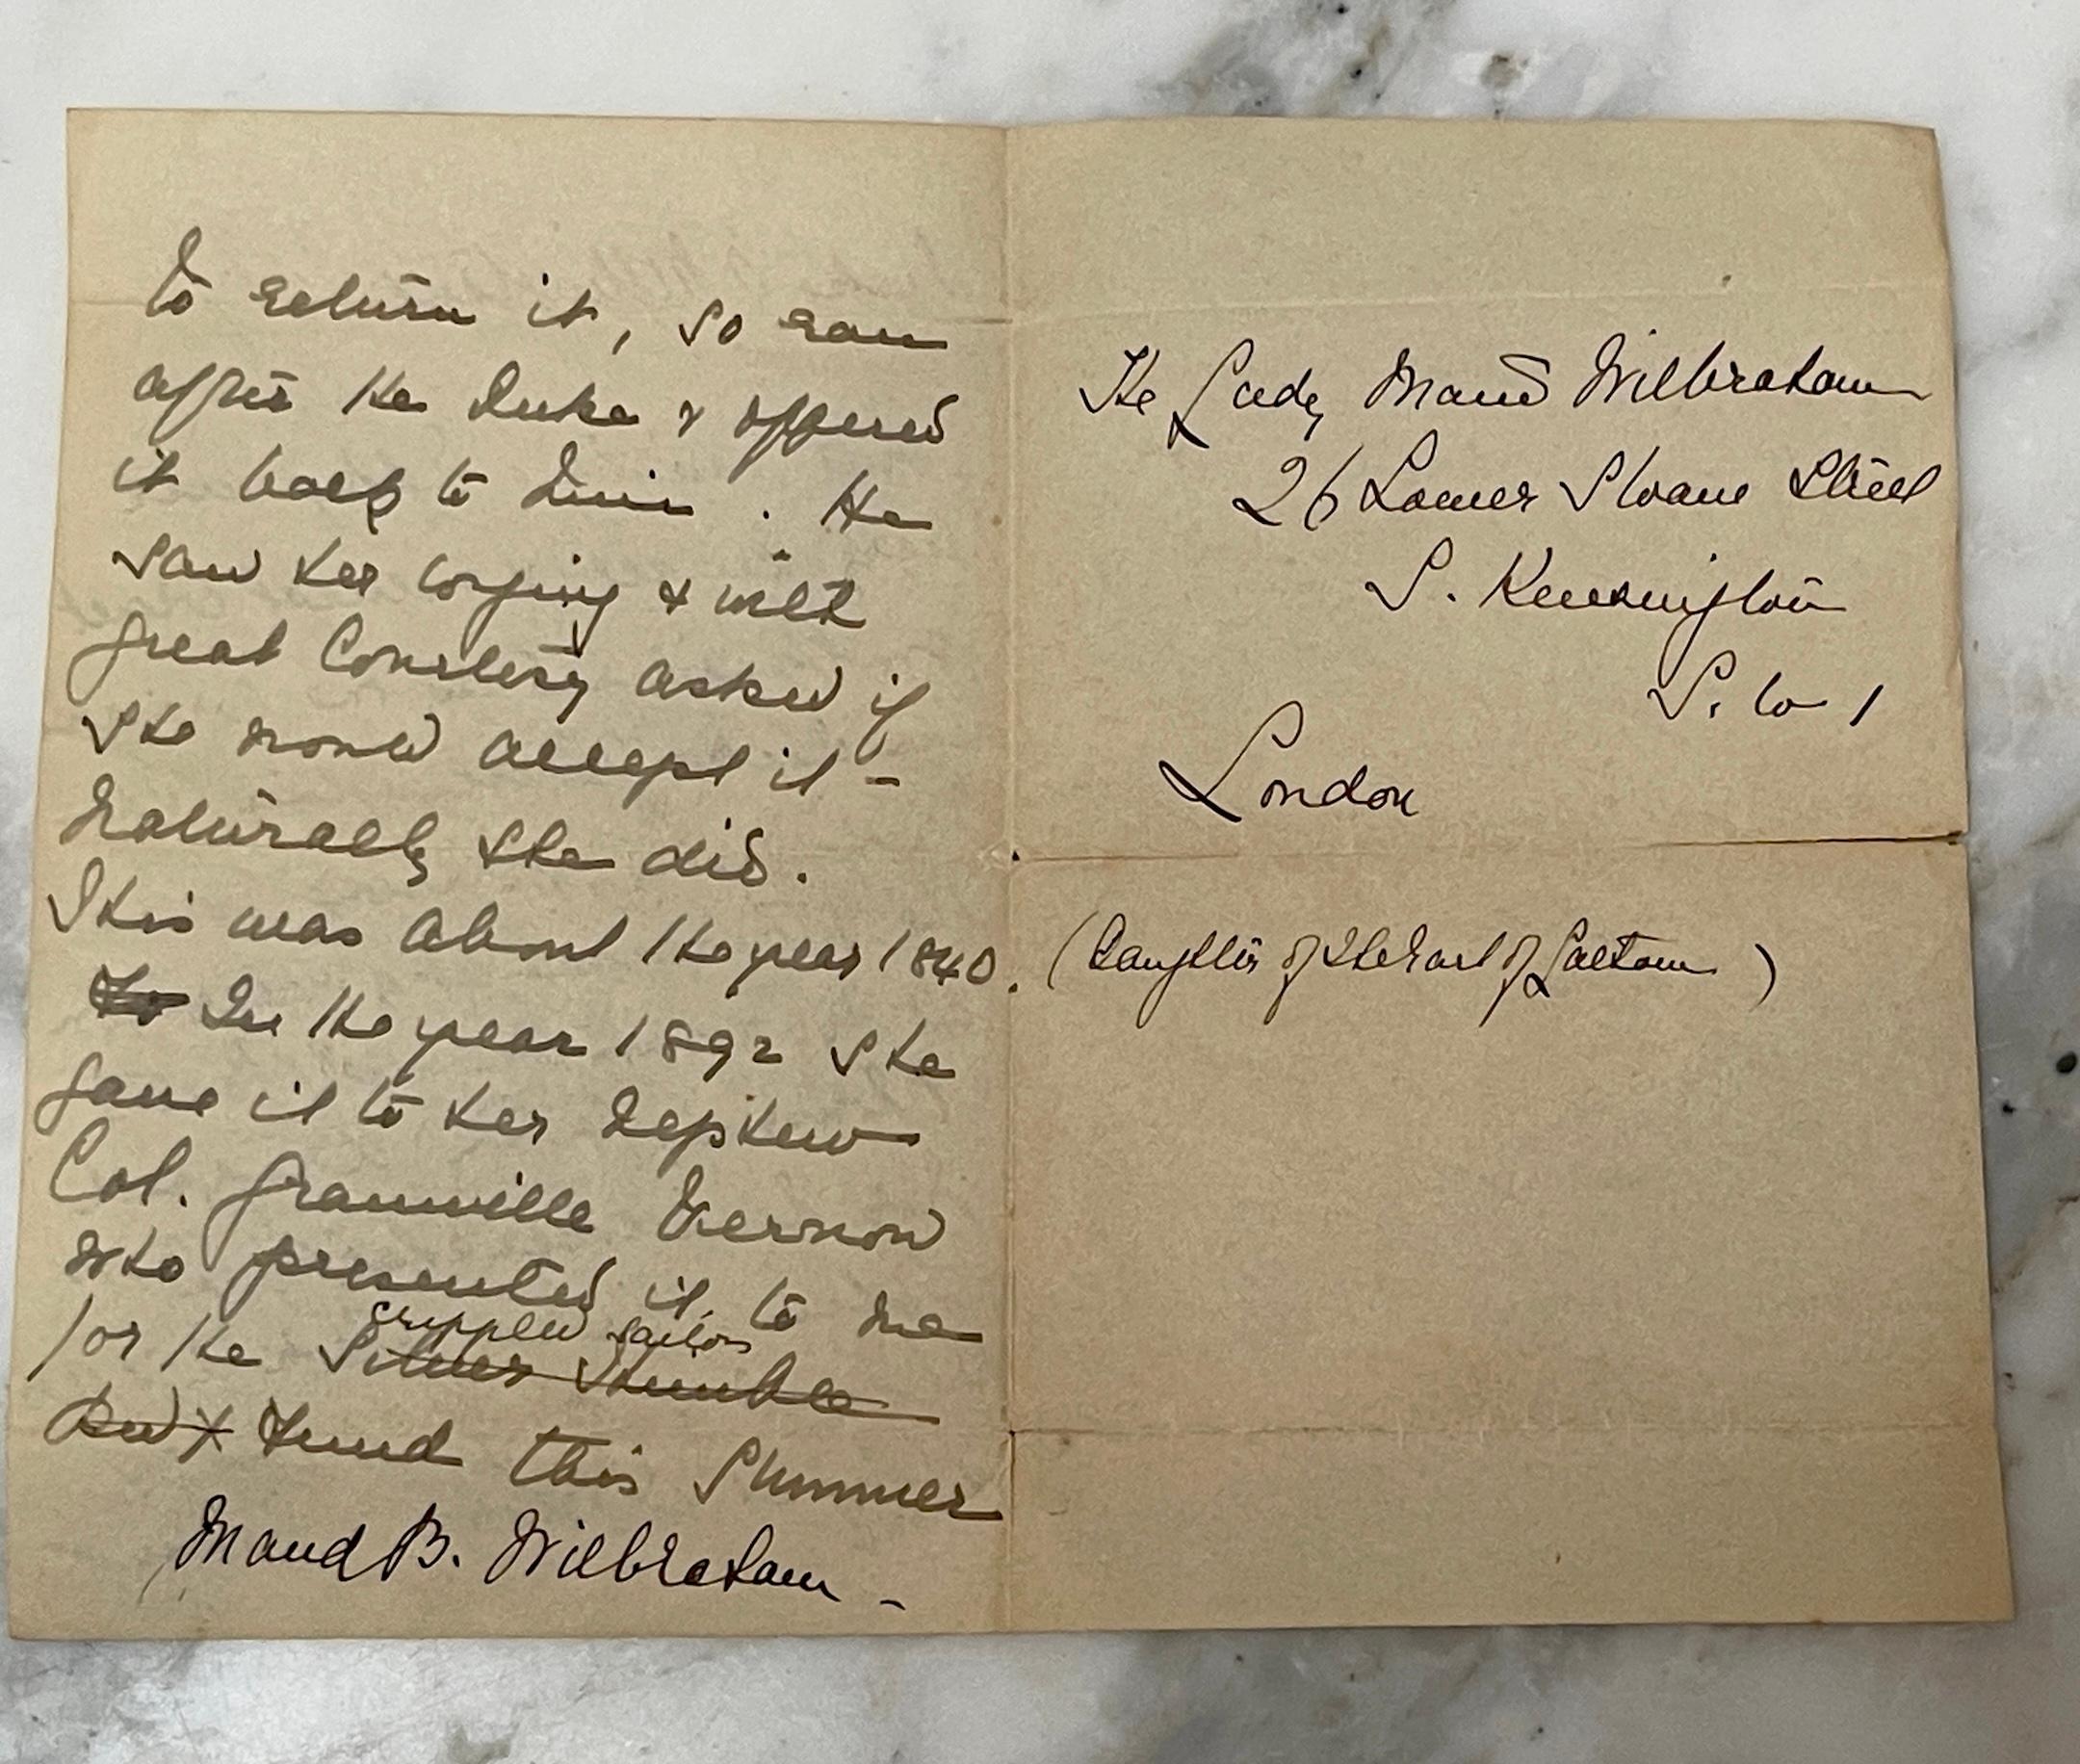 to return it, so ran
after the Duke & offered
it back to him. He
saw her longing & with
great Courtesy asked if
she would accept it -
Naturally she did.
This was about the year 1840.
To In the year 1892 she
gave it to her Nephew
Col. Granville Vernon
who presented it to me
crippled sailors
for the Silver Thimble
Fund this Summer
Maud B. Wilbraham -
The Lady Maud Wilbraham
26 Lower Sloane Street
S. Kensington
S. W 1
London
(Daughter of The Earl of Lathom)